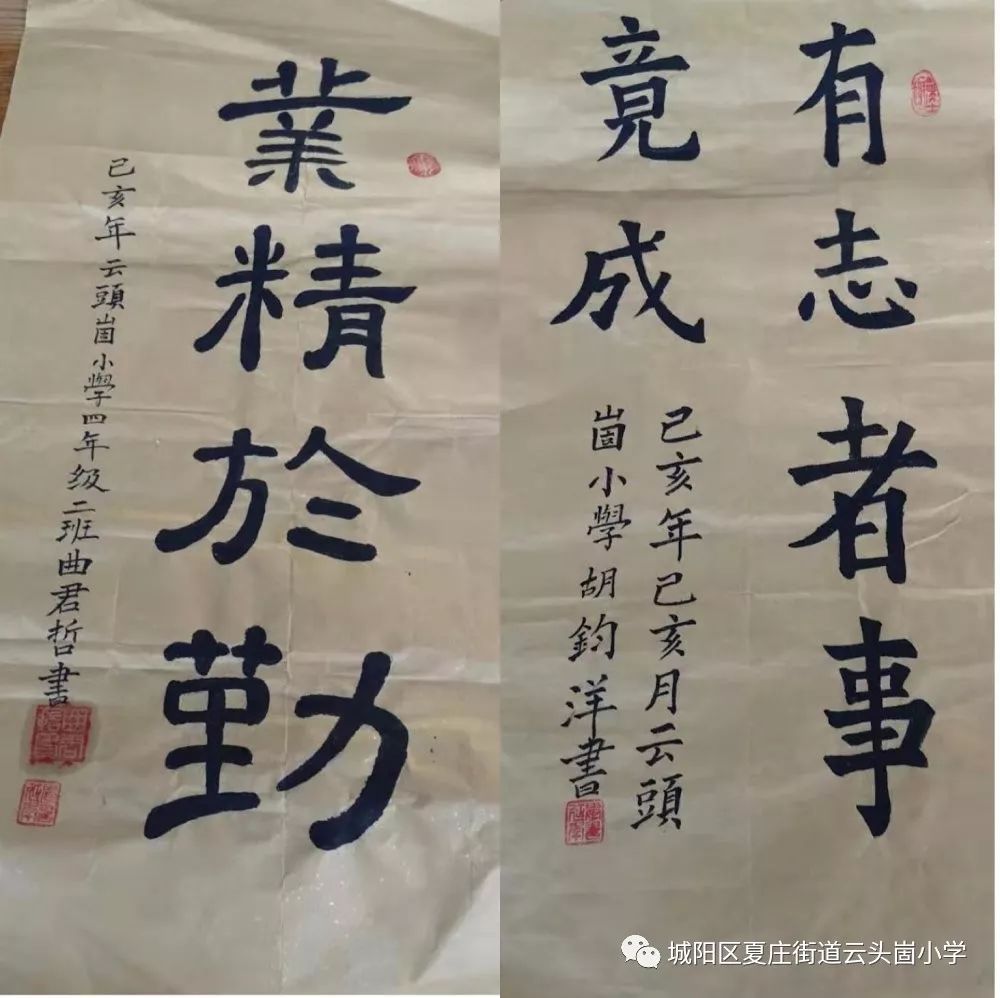 業精於勤
己亥年云頭崮小學四年级二班曲君哲書
有志者事
竟成
己亥年己亥月云頭
崮小學胡鈞洋書
城阳区夏庄街道云头崮小学